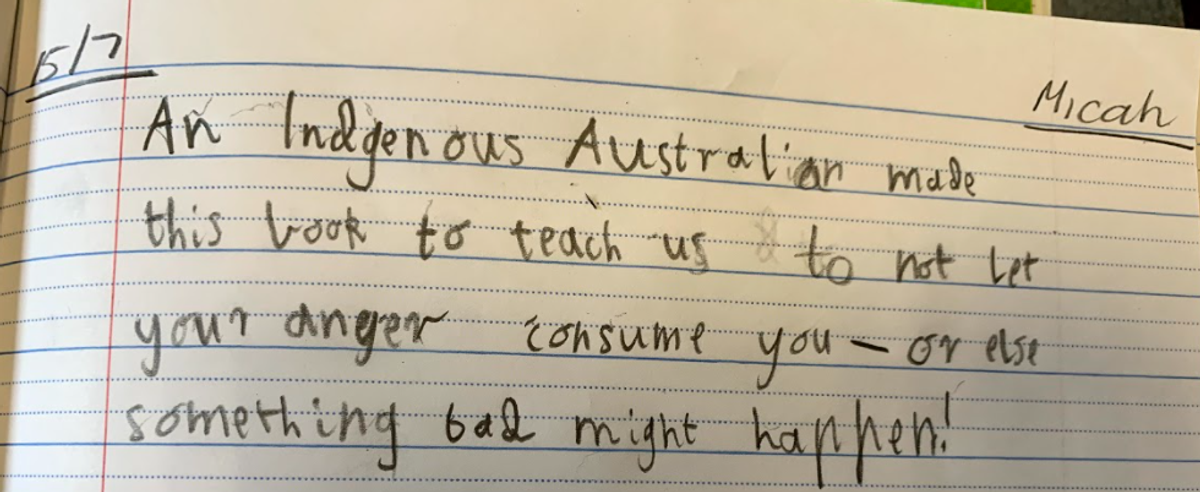 15/7
Micah
An Indgenous Australian made
this book to teach us to not let
your anger consume you – or else
something bad might happen!